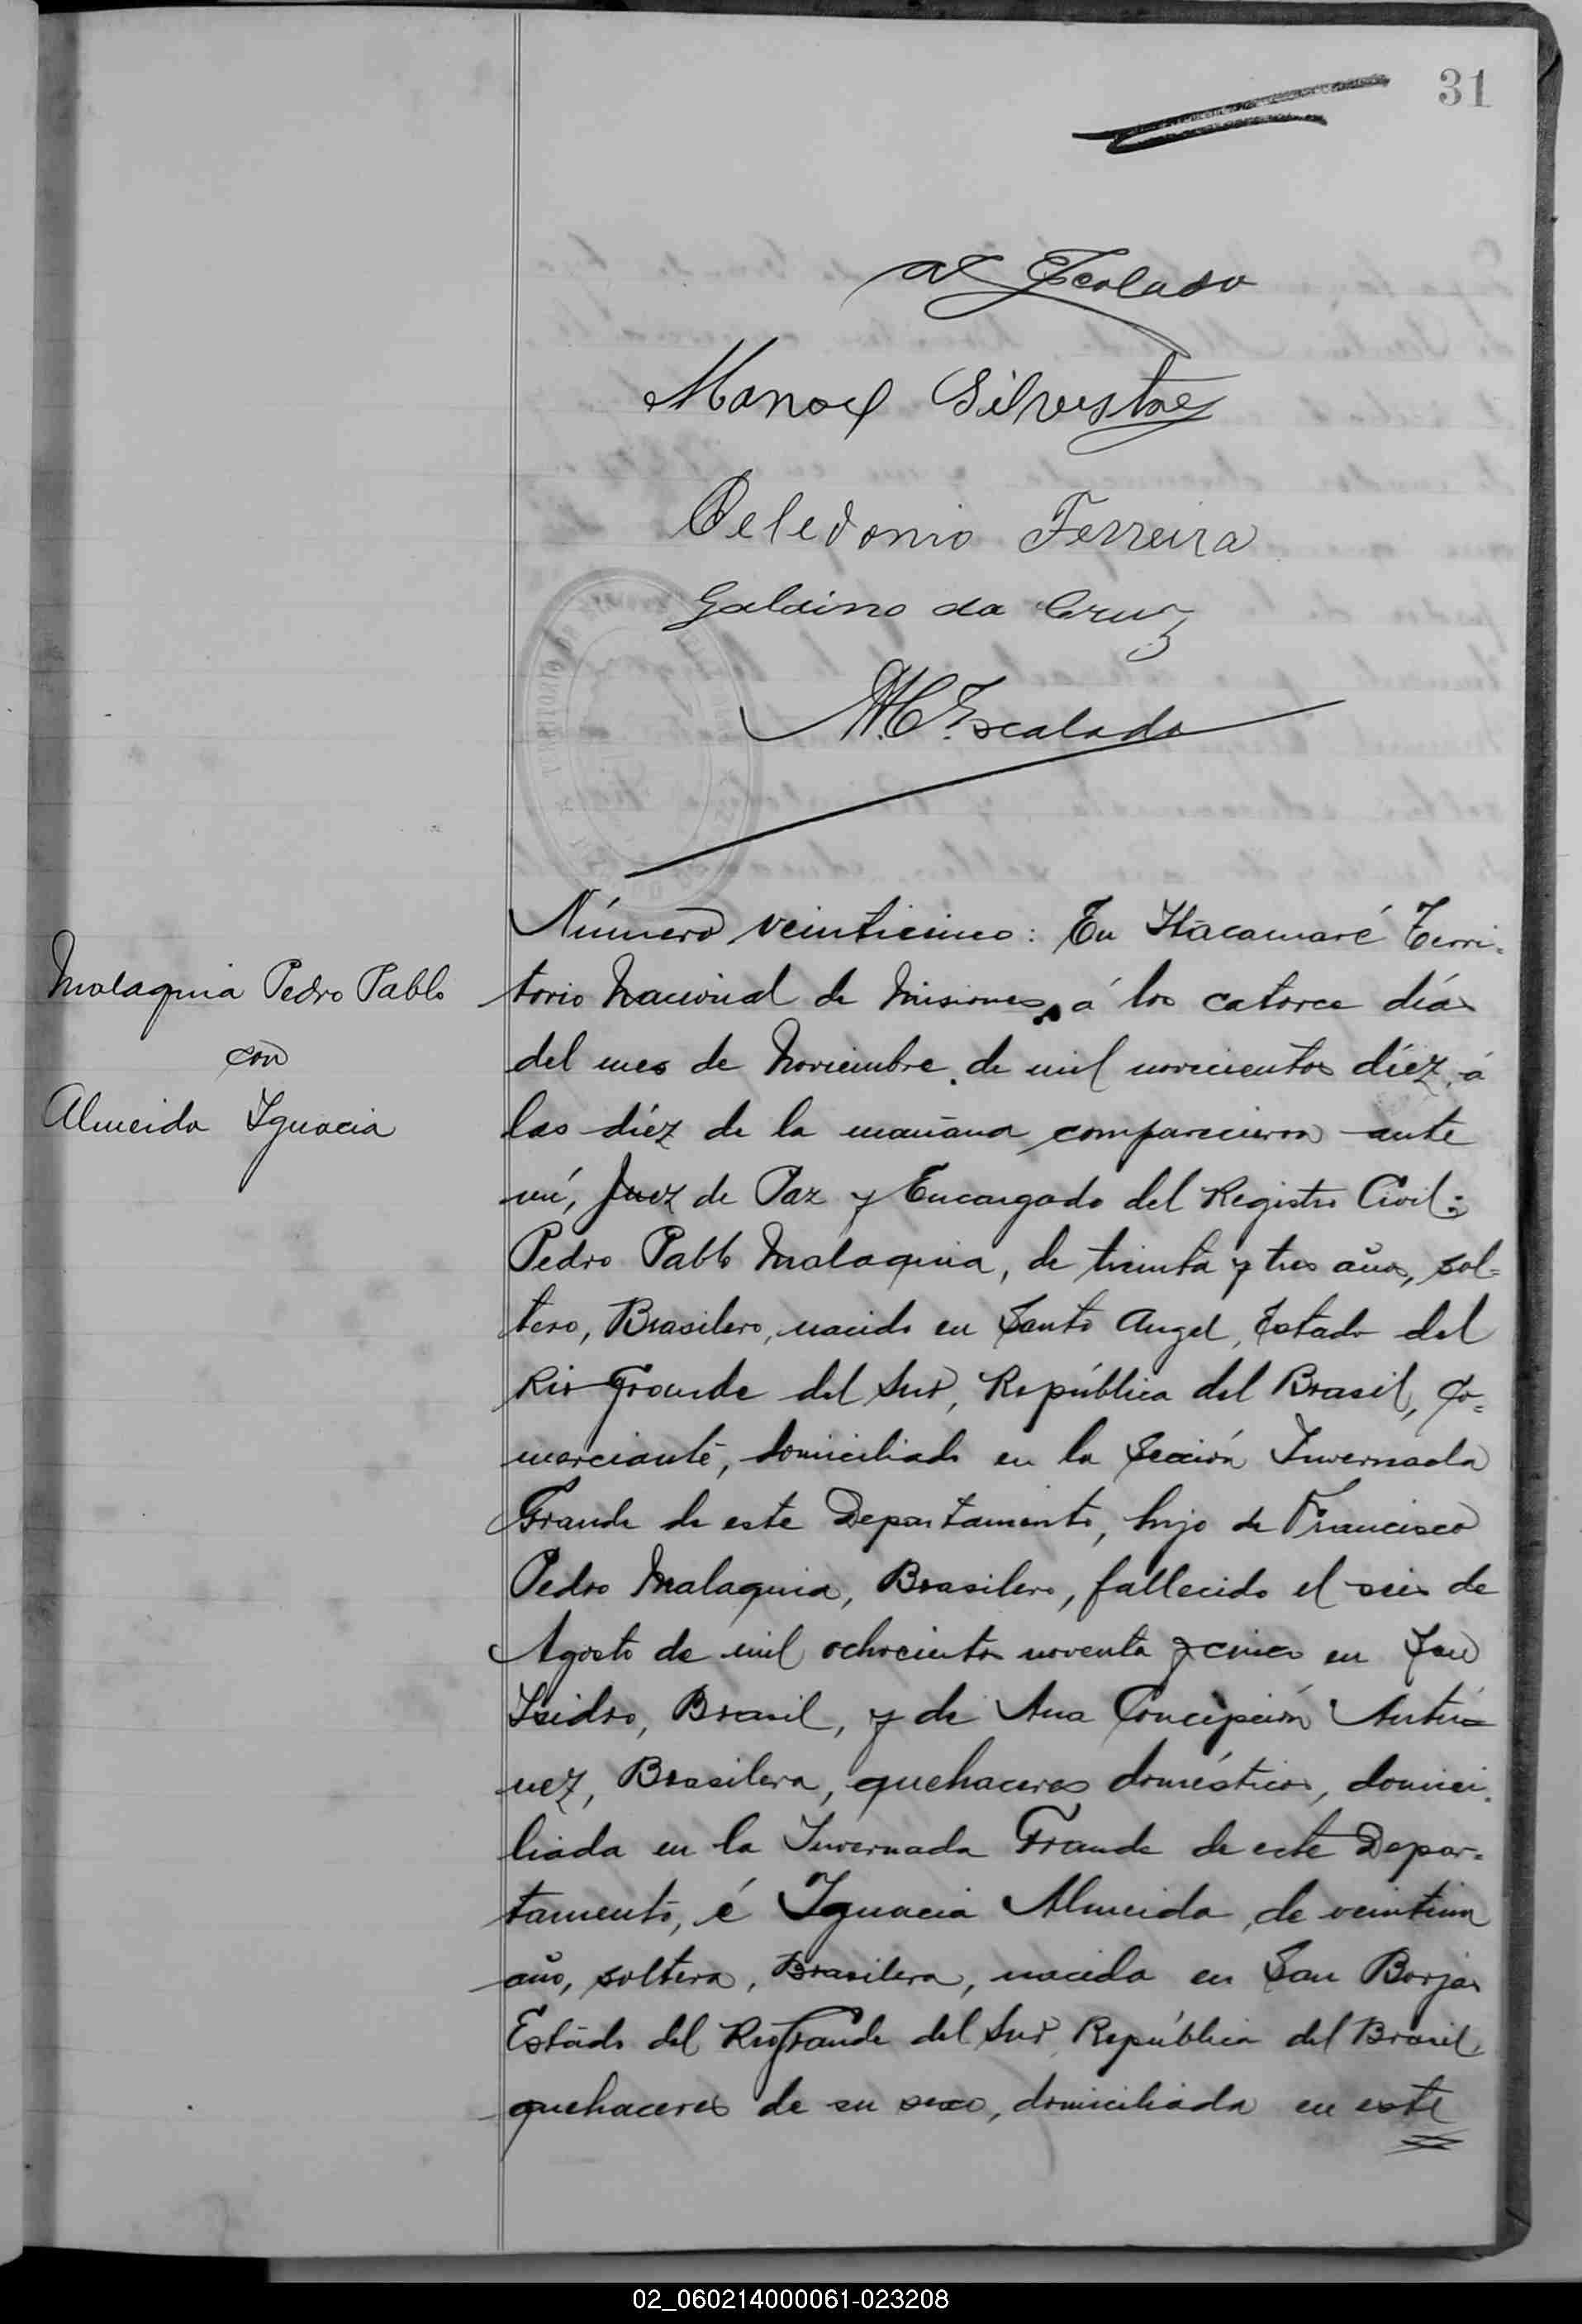 31
Manoel Silvestre
Celedonio Ferreira
Galdino da Cruz
M.C. Escalada
Malaquia Pedro Pablo
con
Almeida Ignacia
Número veinticinco: En Itacamaré Terri-
torio Nacional de Misiones, á los catorce días
del mes de Noviembre de mil novecientos diéz, á
las diéz de la mañana comparecieron ante
mí, Juez de Paz y Encargado del Registro Civil:
Pedro Pablo Malaquia, de treinta y tres años, sol-
tero, Brasilero, nacido en Santo Angel, Estado del
Rio Grande del Sud, República del Brasil, co-
merciante, domiciliado en la Sección Invernada
Grande de este Departamento, hijo de Francisco
Pedro Malaquia, Brasilero, fallecido el seis de
Agosto de mil ochocientos noventa y cinco en San
Isidro, Brasil, y de Ana Concepción Antú-
nez, Brasilera, quehaceres domésticos, domici-
liada en la Invernada Grande de este Depar-
tamento, é Ignacia Almeida, de veintiun
año, soltera, Brasilera, nacida en San Borja,
Estado del Rio Grande del Sud, República del Brasil,
quehaceres de su sexo, domiciliada en este
02_060214000061-023208